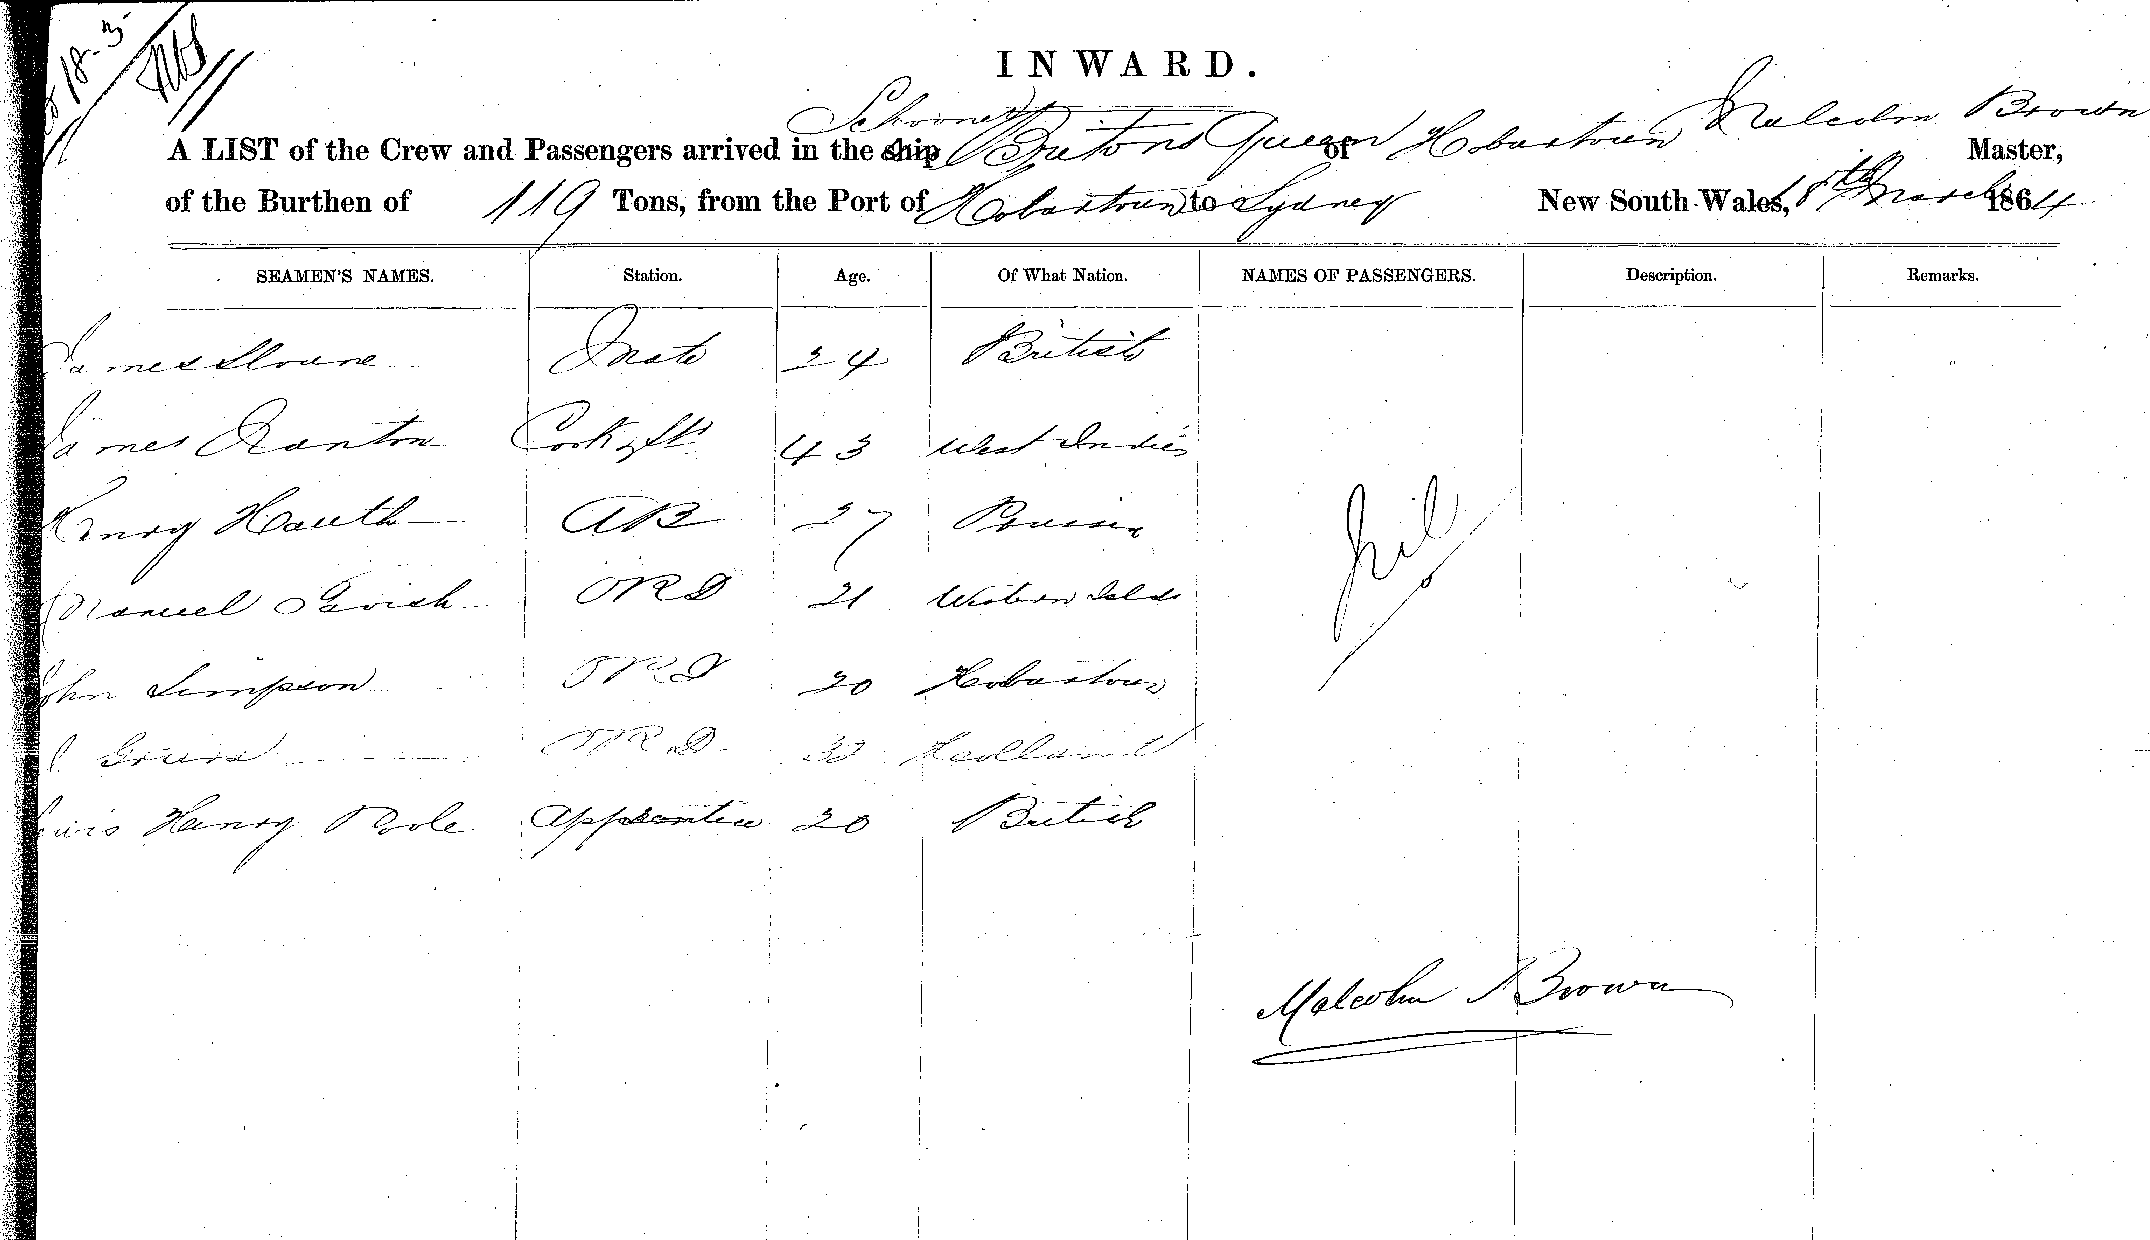 18-3
INWARD.
Schooner
A LIST of the Crew and Passengers arrived in the ship Britons Queen of Hobartown Malcolm Brown Master,
of the Burthen of 119 Tons, from the Port of Hobartown to Sydney New South Wales, 18th March 1864
SEAMEN'S NAMES. Station. Age. Of What Nation. NAMES OF PASSENGERS. Description. Remarks.
James Mate 24 British
James Ranton Cook & St 43 West Indies
Henry Hauth AB 27 Prussia
Manuel ORD 21 Western Islds
nil
John Simpson ORD 20 Hobartown
ORD 30 Holland
Henry Poole Apprentice 20 British
Malcolm Brown